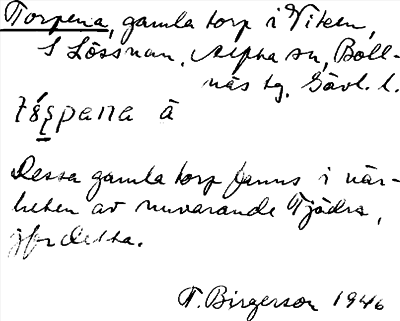 Torpena, gamla torp i Viken,
S Lössnan, Alfta sn, Boll-
näs tg. Gävl. l.
á
Dessa gamla torp fanns i när-
heten av nuvarande Tjädra,
jfr detta.
T. Birgerson 1946